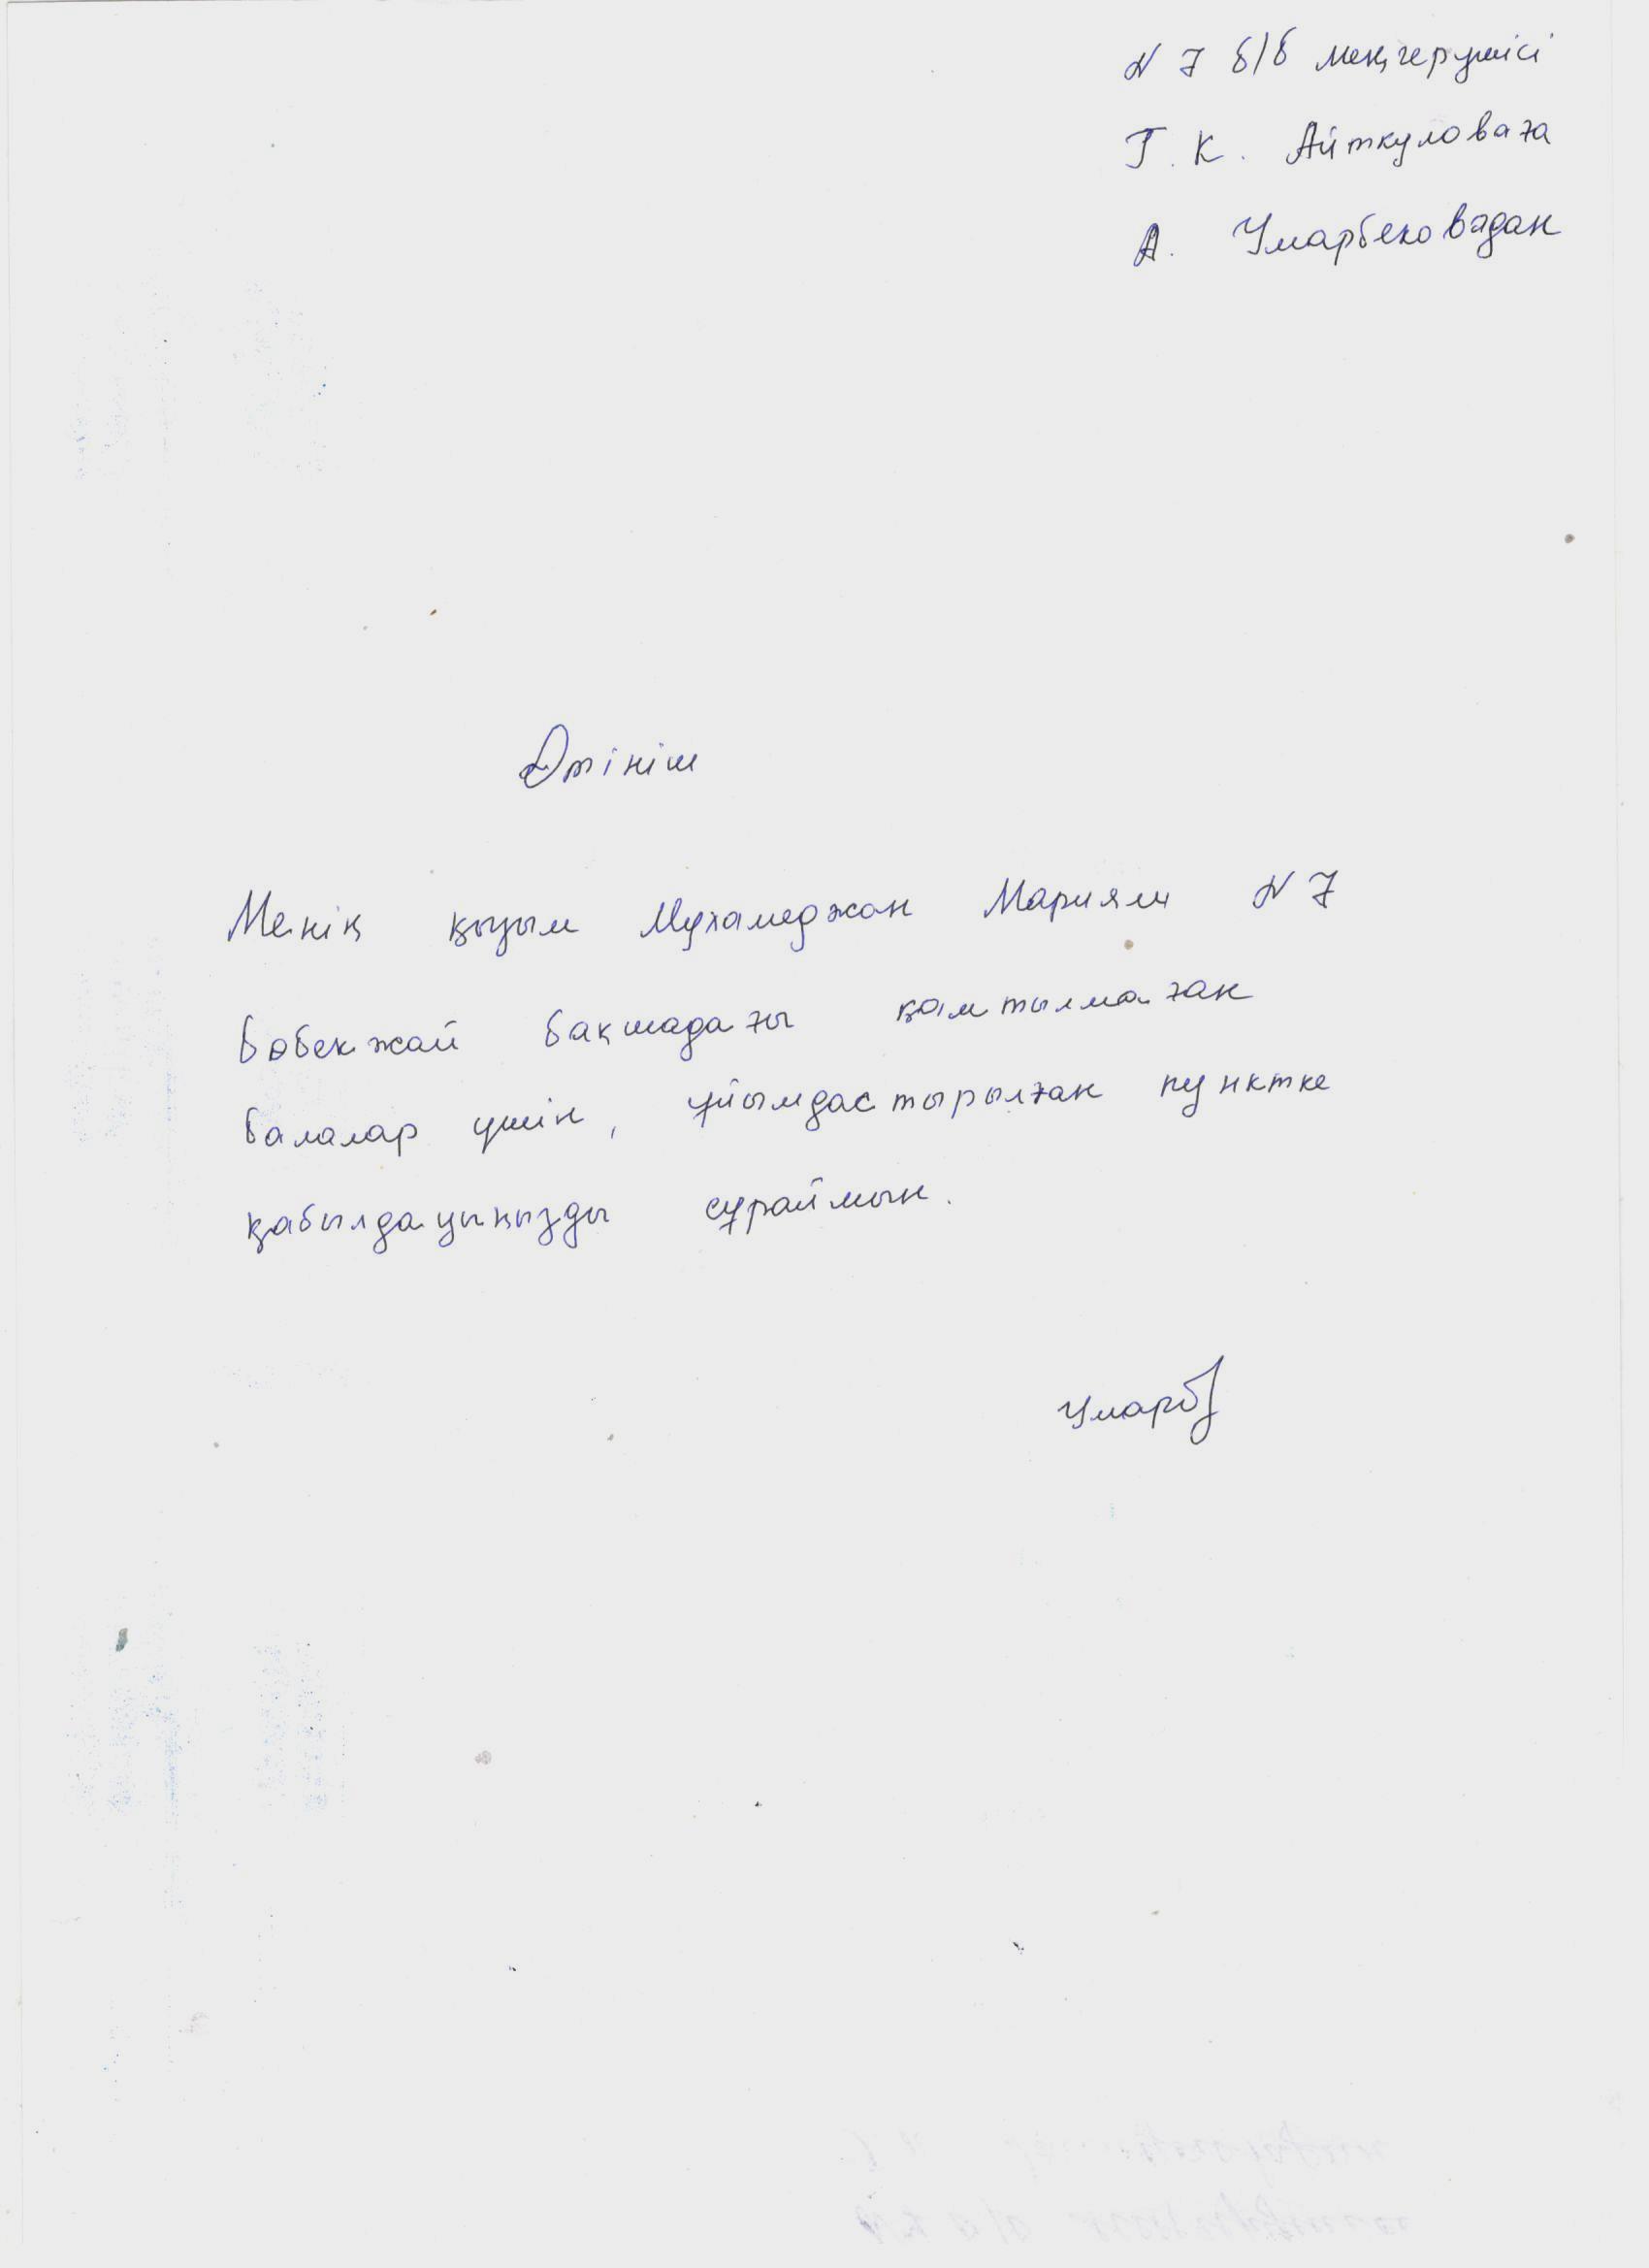 N 7 б/б меңгерушісі
Г. К. Айткуловаға
А. Умарбековадан
Өтініш
Менің қызым Мухамеджан Мариям N 7
бөбекжай бақшадағы қамтылмаған
балалар үшін, ұйымдастырылған пунктке
қабылдауыңызды сұраймын.
Умарб